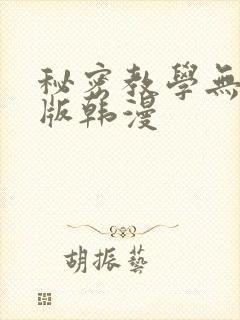 秘密教學無
版韩漫
胡振藝